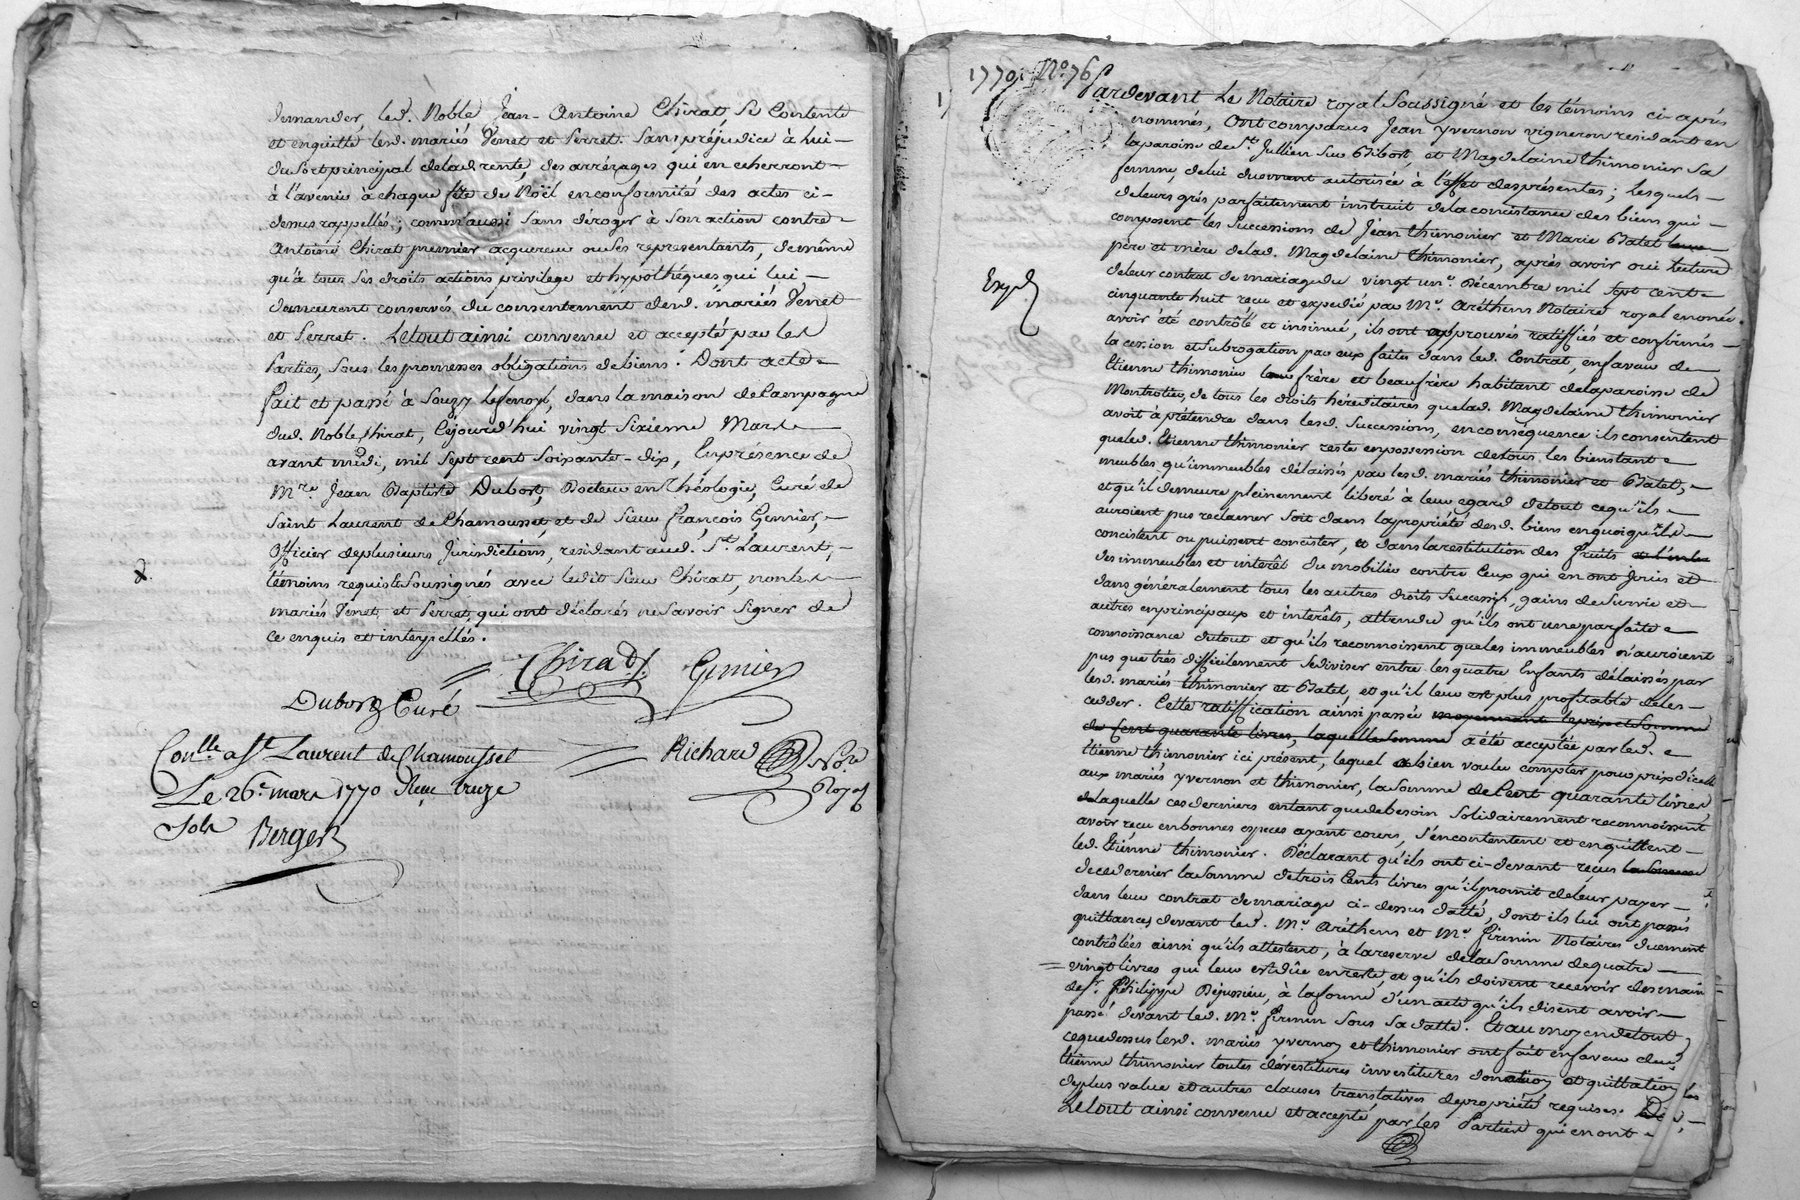 demander, led. Noble Jean-Antoine Chirat, se Contente
et enquitte lesd. mariés Venet et Perret. Sans préjudice à lui
du Sort principal delad. rente, des arrérages qui en cherront
à l'avenir à chaque fête de Noël en conformité des actes ci-
dessus rappellés; comm'aussi sans deroger à son action contre
Antoine Chirat premier acquereur ou ses representants, de même
qu'à tous ses droits actions privilege et hypothéques qui lui
demeurent conservés du consentement desd. mariés Venet
et Perret. Le tout ainsi convenu et accepté par les
Parties, sous les promesses obligations de biens. Dont acte
fait et passé à Souzy dans la maison de Campagne
dud. Noble Chirat, cejourd'hui vingt sixieme Mars
avant midi, mil sept cent soixante-dix, En présence de
Mre. Jean Baptiste Dubost, Docteur en Théologie, Curé de
Saint Laurent de Chamousset, et de Sieur François Grenier,
Officier de plusieurs Jurisdictions, residant aud. St. Laurent,
témoins requis & soussignés avec ledit Sieur Chirat, non les
mariés Venet et Perret, qui ont déclarés ne savoir signer de
ce enquis et interpellés.
Chirat Grenier
Dubost Curé
Conllé a St. Laurent de Chamousset
Richard Nore.
Royal
Le 26e. mars 1770 Reçu treze
Sols
Berger
1770. No. 76
Pardevant Le Notaire royal Soussigné et les témoins ci-après
nommés, Ont comparus Jean yvernon vigneron residant en
la paroisse de St. Jullien sur Bibost, et Magdelaine thimonier sa
femme, de lui duement autorisée à l'effet des présentes; lesquels
de leurs grés parfaitement instruit de la concistance des biens qui
composent les successions de Jean thimonier et Marie Batet leurs
père et mère delad. Magdelaine thimonier, après avoir oui lecture
de leur contrat de mariage du vingt un Décembre mil sept cent
Expd.
cinquante huit reçu et expedié par Me. Aréthens Notaire royal enoncé
avoir été contrôlé et insinué, ils ont approuvés ratiffiés et confirmés
la cession et subrogation par eux faites dans led. Contrat, en faveur de
Etienne thimonier leur frère et beaufrère habitant de la paroisse de
Montrotier, de tous les droits héréditaires que lad. Magdelaine thimonier
avoit à prétendre dans lesd. successions, en conséquence ils consentent
que led. Etienne thimonier reste en possession de tous les biens tant
meubles qu'immeubles délaissés par lesd. mariés thimonier et Batet,
et qu'il demeure pleinement liberé à leur egard de tout ce qu'ils
auroient pus reclamer soit dans la propriété desd. biens en quoi qu'ils
concistent ou puissent concister, et dans la restitution des fruits
des immeubles et intérêt du mobilier contre Ceux qui en ont jouis et
dans généralement tous les autres droits successifs, gains de survie et
autres en principaux et intérêts, attendu qu'ils ont une parfaite
connoissance du tout et qu'ils reconnoissent que les immeubles n'auroient
pus que très difficilement se diviser entre les quatre Enfants délaissés par
lesd. mariés thimonier et Batet, et qu'il leur est plus profitable de les
ceder. Cette ratiffication ainsi passée moyennant le prix et Somme
de Cent quarante livres, laquelle somme a été acceptée par led.
Etienne thimonier ici présent, lequel a bien voulu compter pour prix d'icelle
aux mariés yvernon et thimonier, la somme de Cent quarante livres
de laquelle ces derniers en tant que de besoin solidairement reconnoissent
avoir reçu en bonnes especes ayant cours, s'en contentent et en quittent
led. Etienne thimonier. Déclarant qu'ils ont ci-devant reçus la somme
de ce dernier la somme de trois Cents livres qu'il promit de leur payer
dans leur contrat de mariage ci-dessus datté, dont ils lui ont passés
quittances devant led. Me. Aréthens et Me. Firmin Notaires duement
contrôlées ainsi qu'ils attestent, à la reserve de la somme de quatre
vingt livres qui leur est dûe en reste, et qu'ils doivent recevoir des mains
de Sr. Philippe Déjussieu, à la forme d'un acte qu'ils disent avoir
passé devant led. Me. Firmin sous sa datte. Et au moyen de tout
ce que dessus lesd. mariés yvernon et thimonier ont fait en faveur dud.
Etienne thimonier toutes dévestitures investitures donation et quittation
de plus value et autres clauses translatives de propriété requises.
Le tout ainsi convenu et accepté par les Parties qui en ont